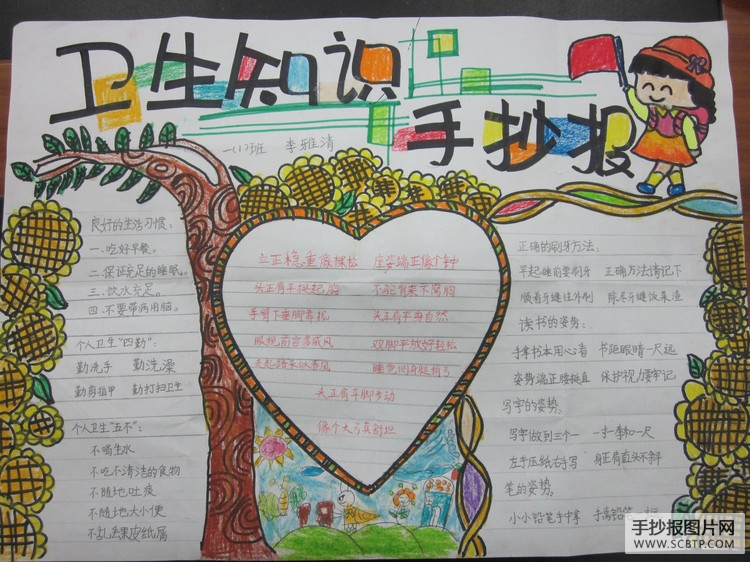 卫生知识
手抄报
一(1)班 李雅清
良好的生活习惯:
一.吃好早餐。
二.保证充足的睡眠。
三.饮水充足。
四.不要带病用脑。
个人卫生"四勤":
勤洗手 勤洗澡
勤剪指甲 勤打扫卫生
个人卫生"五不":
不喝生水
不吃不清洁的食物
不随地吐痰
不随地大小便
不乱丢果皮纸屑
立正稳重像棵松 座姿端正像个钟
头正肩平挺起胸
手臂下垂脚靠拢 头正肩平得自然
眼视前方 威风 双脚平放好轻松
走起路来似春风 睡觉侧身
头正肩平脚步动
像个大弓真舒坦
正确的刷牙方法:
早起睡前要刷牙 正确方法请记下
顺着牙缝往外刷 除尽牙缝饭菜渣
读书的姿势:
手拿书本用心看 书距眼睛一尺远
姿势端正腰挺直 保护视力要牢记
写字的姿势。
写字做到三个一 一寸一拳和一尺
左手压纸右手写 身正肩直头不斜
笔的姿势。
小小铅笔手中拿 手离铅笔
手抄报图片网
WWW.SCBTP.COM